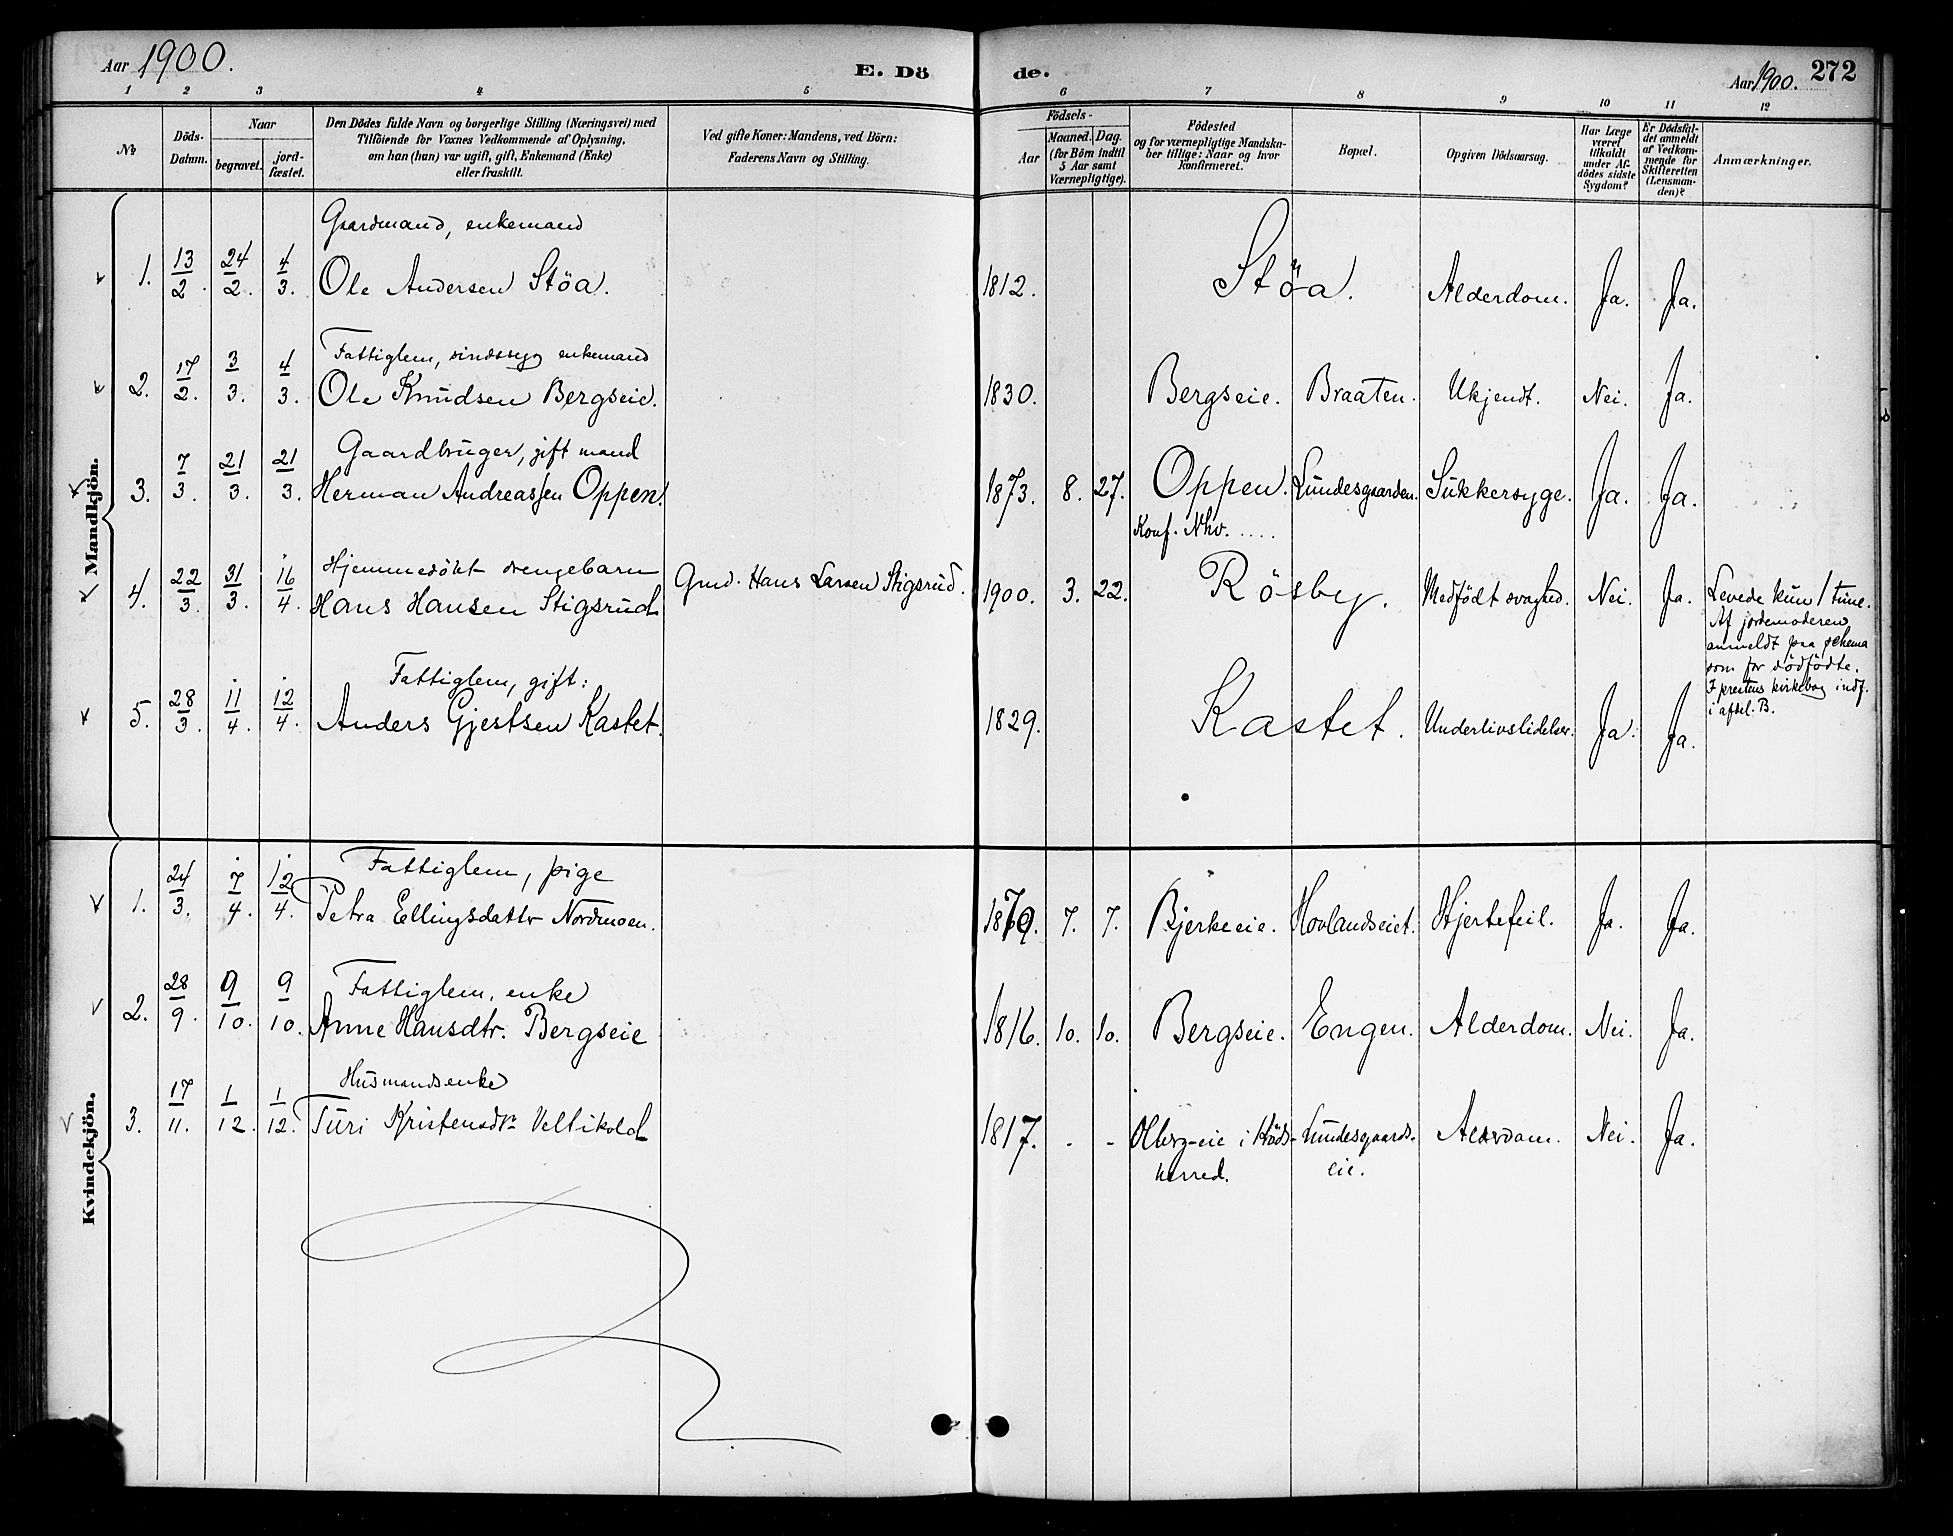 Aar 1900.
E. Dö de.
Aar 1900. 272
1 2 3 4 5 6 7 8 9 10 11 12
No Döds-Datum. Naar begravet. jord-fæstet. Den Dödes fulde Navn og borgerlige Stilling (Næringsvei) med Tilföiende for Voxnes Vedkommende af Oplysning, om han (hun) var ugift, gift, Enkemand (Enke) eller fraskilt. Ved gifte Koner: Mandens, ved Börn: Faderens Navn og Stilling. Födsels- Aar Maaned. Dag. (for Börn indtil 5 Aar samt Værnepligtige). Födested og for værnepligtige Mandska-ber tillige: Naar og hvor konfirmeret. Bopæl. Opgiven Dödsaarsag. Har Læge været tilkaldt under Af-dödes sidste Sygdom? Er Dödsfal-det anmeldt af Vedkom-mende for Skifteretten (Lensman-den)? Anmærkninger.
Mandkjön.
Gaardmand, enkemand
1. 13/2. 24/2. 4/3. Ole Andersen Stöa. 1812. Stöa. Alderdom. Ja. Ja.
Fattiglem, sindssyg enkemand
2. 17/2. 3/3. 4/3. Ole Knudsen Bergseie. 1830. Bergseie. Braaten. Ukjendt. Nei. Ja.
Gaardbruger, gift mand
3. 7/3. 21/3. 21/3. Herman Andreassen Oppen. 1873. 8. 27. Oppen. Lundesgaarden. Sukkersyge. Ja. Ja.
Konf. Nhv. ....
Hjemmedöbt drengebarn
4. 22/3. 31/3. 16/4. Hans Hansen Stigsrud. Gmd. Hans Larsen Stigsrud. 1900. 3. 22. Rösby. Medfödt svaghed. Nei. Ja. Levede kun 1 time.
Af jordemoderen
anmeldt paa schema
som for dödfödte.
I prestens kirkebog indf.
i afdel. B.
Fattiglem, gift:
5. 28/3. 11/4. 12/4. Anders Gjestsen Kastet. 1829. Kastet. Underlivslidelser. Ja. Ja.
Kvindekjön.
Fattiglem, pige
1. 24/3. 7/4. 12/4. Petra Ellingsdatter Nordmoen. 1879. 7. 7. Bjerkeeie. Hovlandseiet. Hjertefeil. Ja. Ja.
Fattiglem, enke
2. 28/9. 9/10. 9/10. Anne Hansdtr. Bergseie 1816. 10. 10. Bergseie. Engen. Alderdom. Nei. Ja.
Husmandsenke
3. 17/11. 1/12. 1/12. Turi Kristensdtr. Veltikold 1817. - - Olberg-eie i Höds- Lundesgaards- Alderdom. Nei. Ja.
herred. eie.